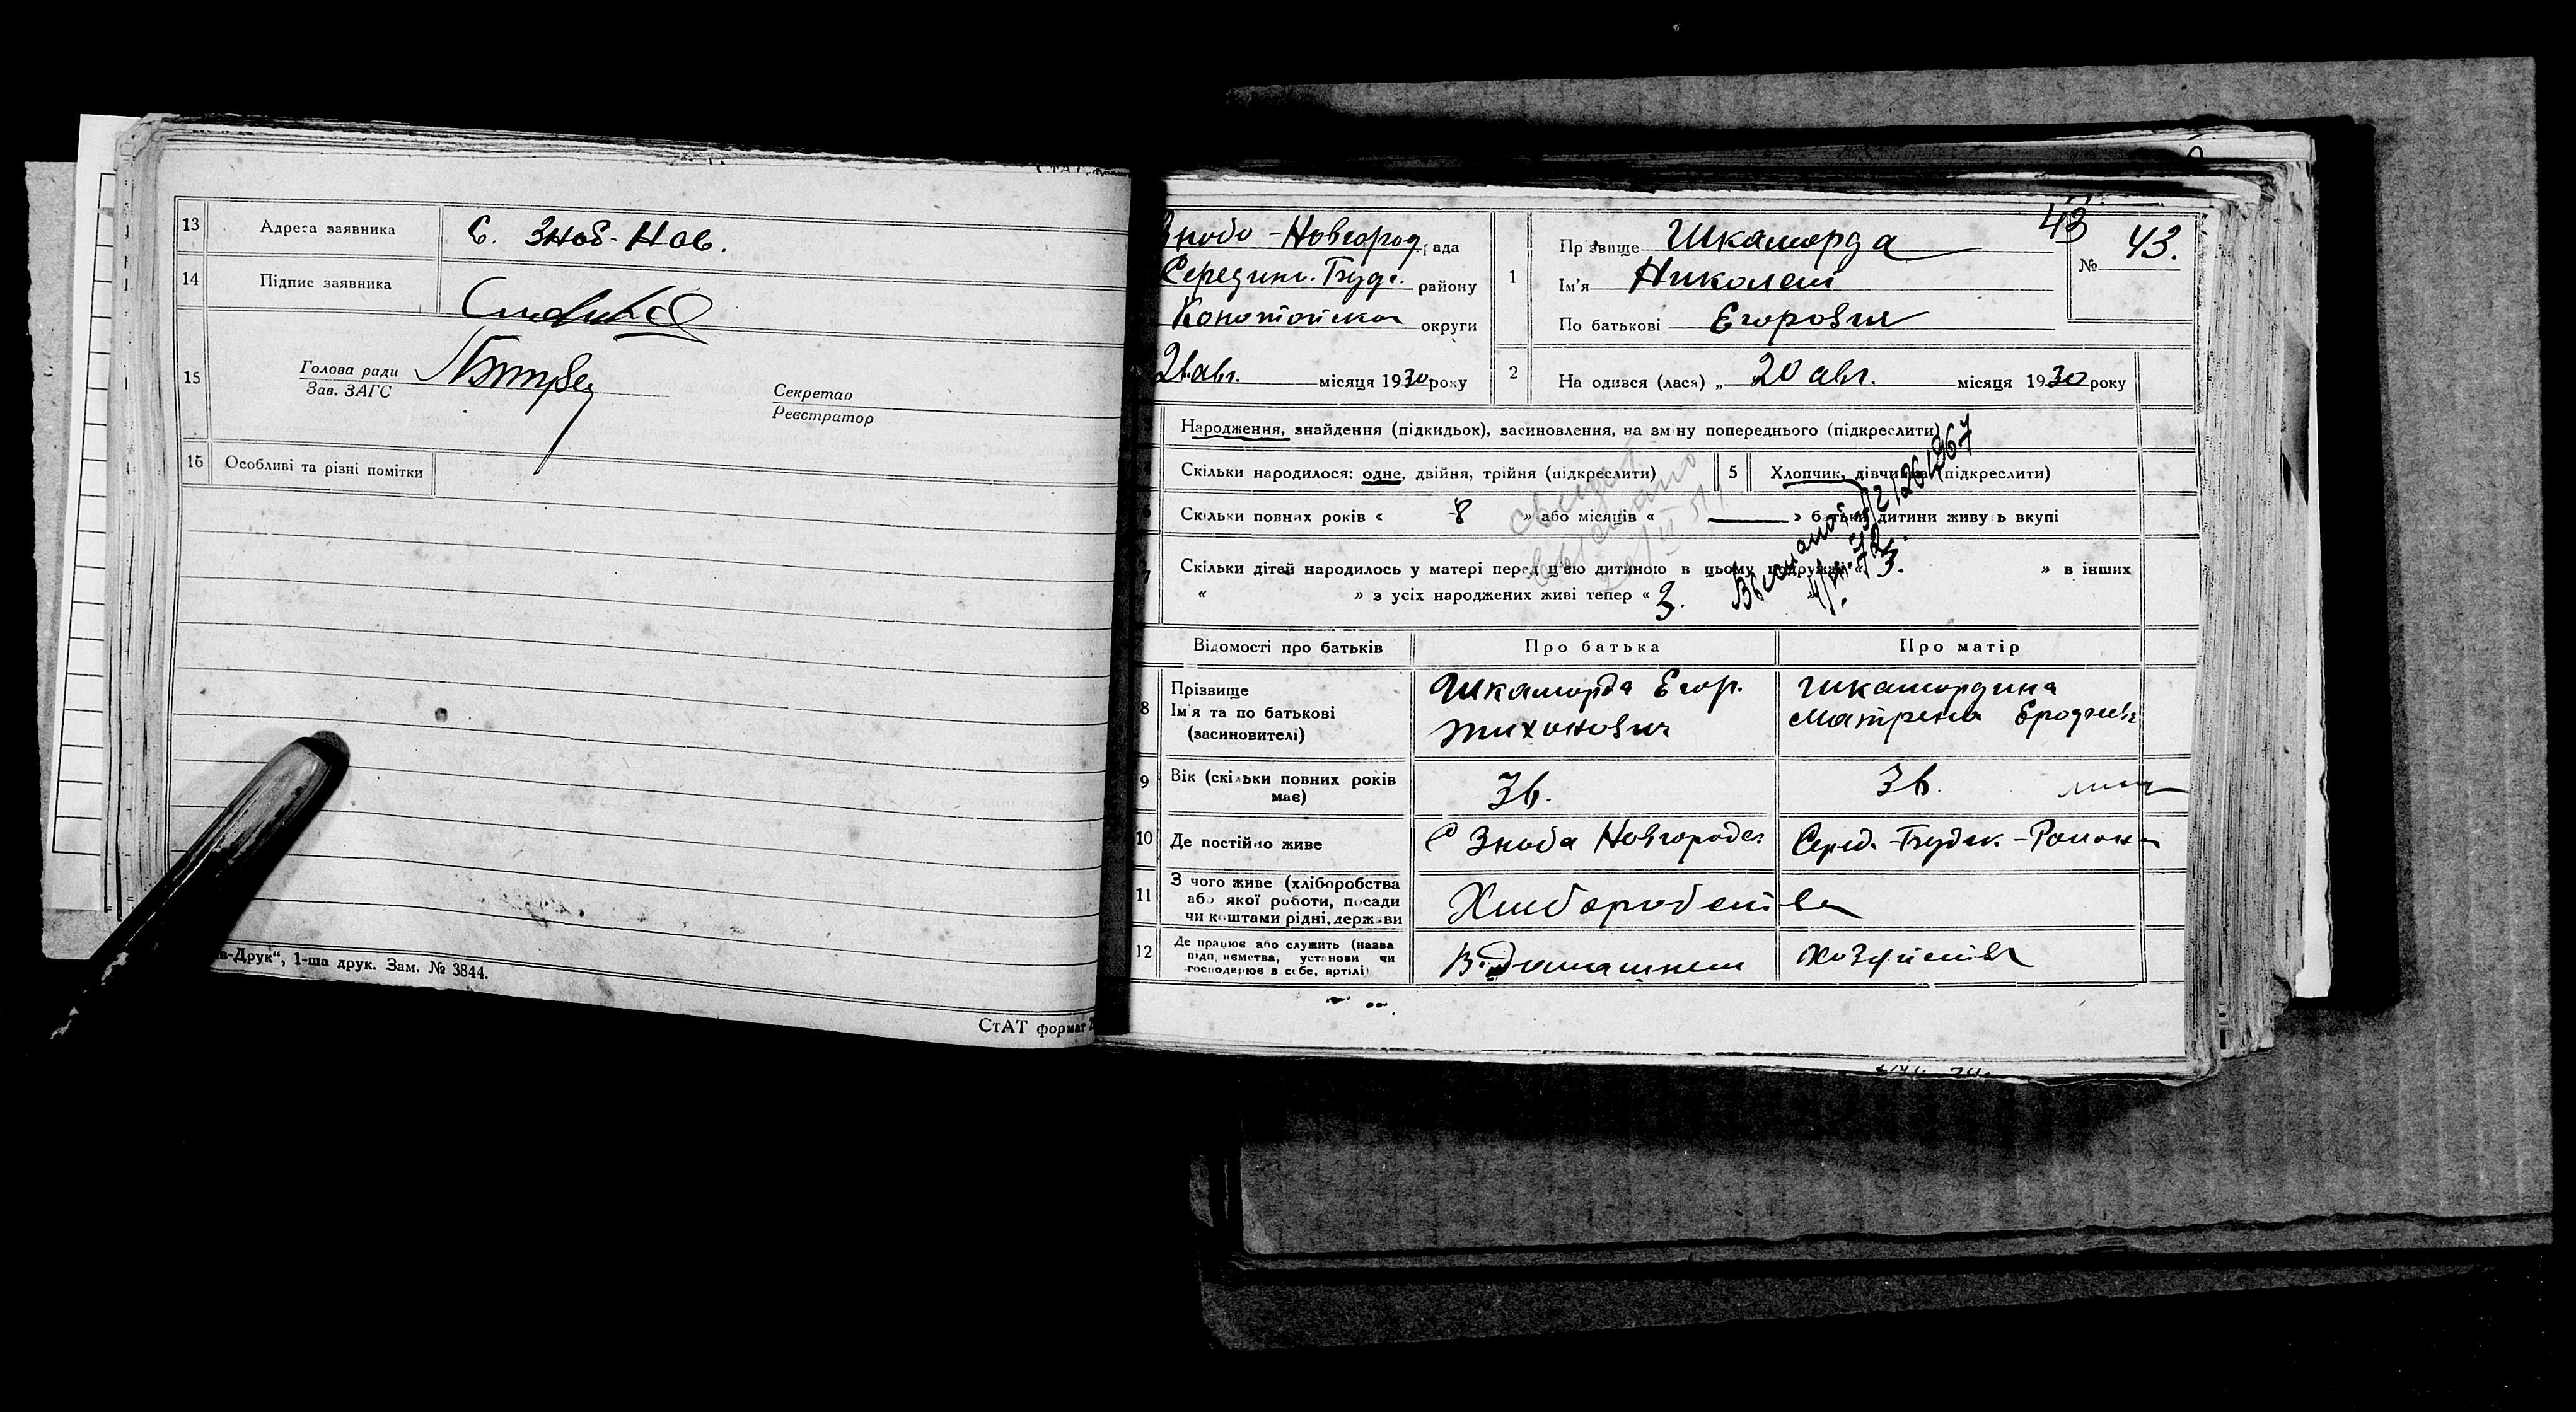 13 Адреса заявника С. Зноб-Нов.
14 Підпис заявника
15 Голова ради
Зав. ЗАГС
Секретар
Реєстратор
16 Особливі та різні помітки
-Друк“, 1-ша друк. Зам. № 3844.
СтАТ формат
43
№ 43.
Знобо-Новгород. рада
Середино-Буд. району
Конотопской округи
21 авг. місяця 1930 року
1 Прізвище Шкаморда
Ім'я Николай
По батькові Егорович
2 На одився (лася) „ 20 авг. місяця 1930 року
Народження, знайдення (підкидьок), засиновлення, на зміну попереднього (підкреслити)
Скільки народилося: одне, двійня, трійня (підкреслити)
5 Хлопчик, дівчинка (підкреслити)
Скільки повних років « 8 » або місяців « — » батьки дитини живуть вкупі
7 Скільки дітей народилось у матері перед цією дитиною в цьому подружжі « 3. » в інших
« » з усіх народжених живі тепер « 3.
Відомості про батьків Про батька Про матір
8 Прізвище
Ім'я та по батькові
(засиновителі)
Шкаморда Егор.
Тихонович
Шкамордина
Матрена
9 Вік (скільки повних років
має)
36.
36.
10 Де постійно живе С Зноба Новгородск Серед.-Будск.-Района
11 З чого живе (хліборобства
або якої роботи, посади
чи коштами рідні, держави
Хлиборобства
12 Де працює або служить (назва
підприємства, установи чи
господарює в себе, артілі)
В домашнем хозяйстве